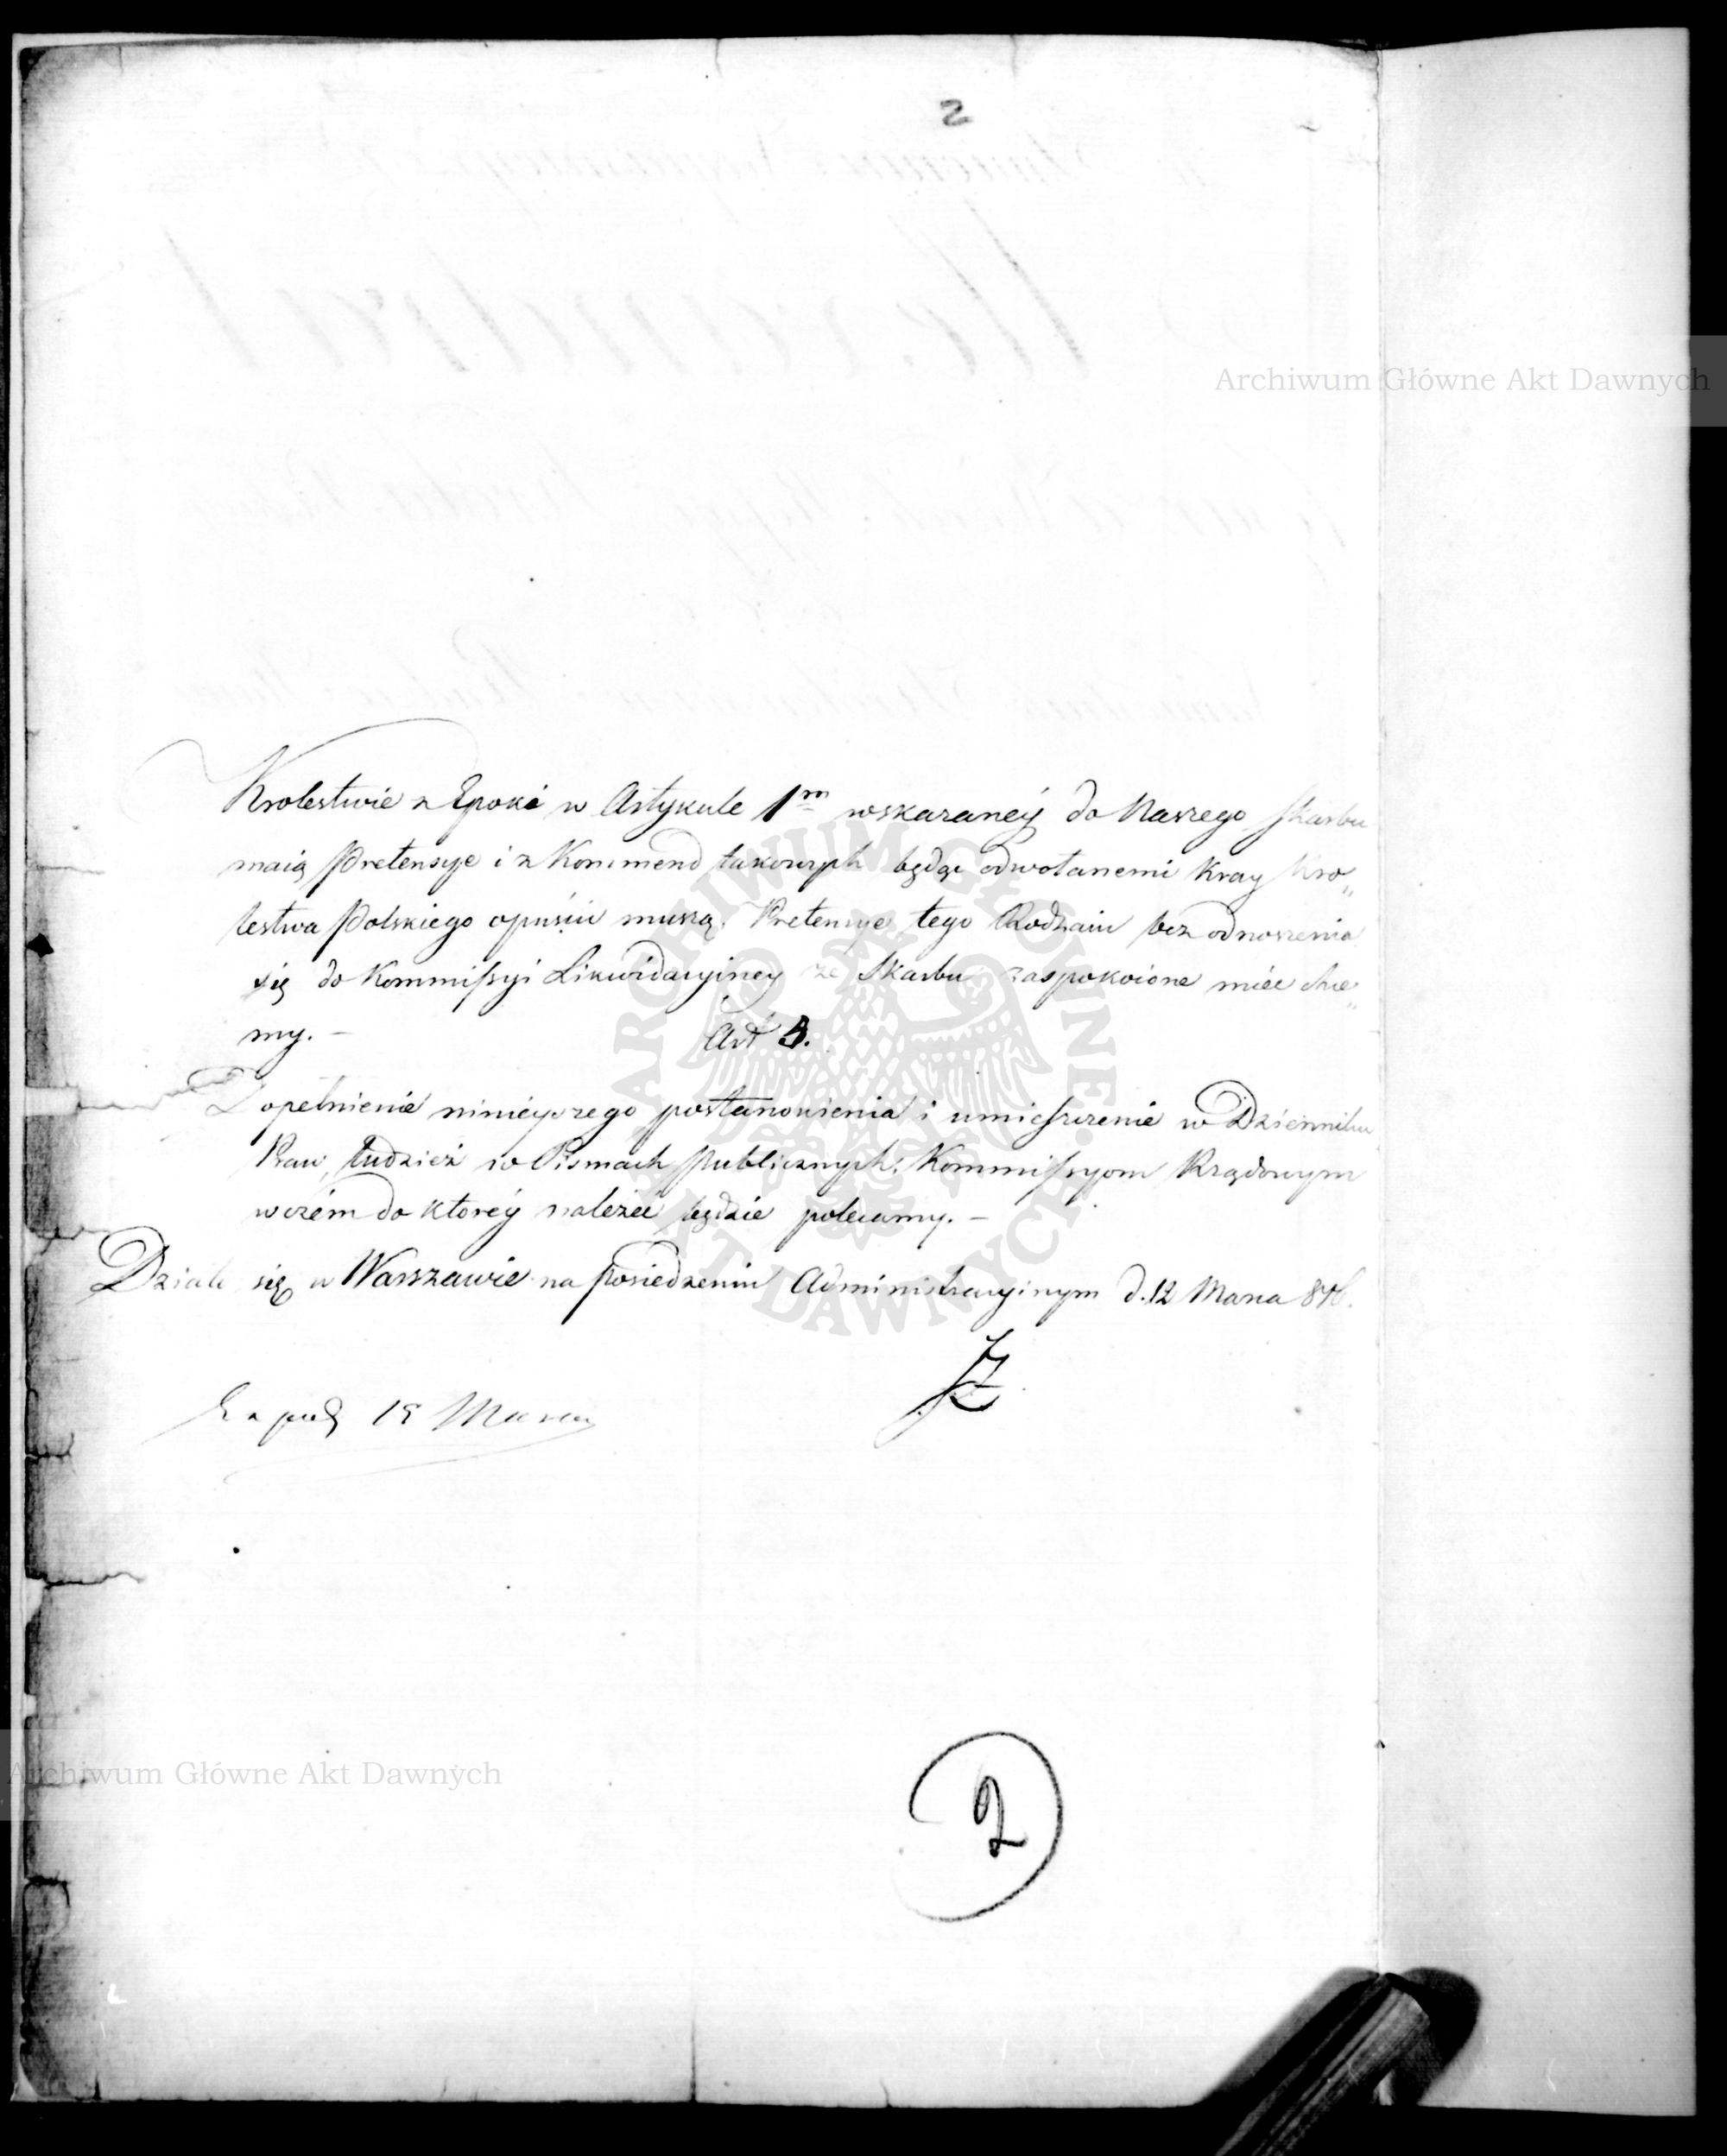 2
Krolestwie z Epoki w Artykule 1m wskazaney do Naszego Skarbu
maią Pretensye i z Kommend takowych będąc odwołanemi Kray Kro„
lestwa Polskiego opuścić muszą. Pretensye tego Rodzaiu bez odnoszenia
się do Kommissyi Likwidacyiney ze Skarbu zaspokoione mieć chce„
my. –
Art 3.
Dopełnienie ninieyszego postanowienia i umieszczenie w Dzienniku
Praw, tudzież w Pismach Publicznych, Kommissyom Rządowym
w czém do którey należeć będzie polecamy. –
Działo się w Warszawie na Posiedzeniu Administracyinym d. 12 Marca 816.
JZ
15 Marca
2
Archiwum Główne Akt Dawnych
Archiwum Główne Akt Dawnych
ARCHIWUM GŁÓWNE AKT DAWNYCH